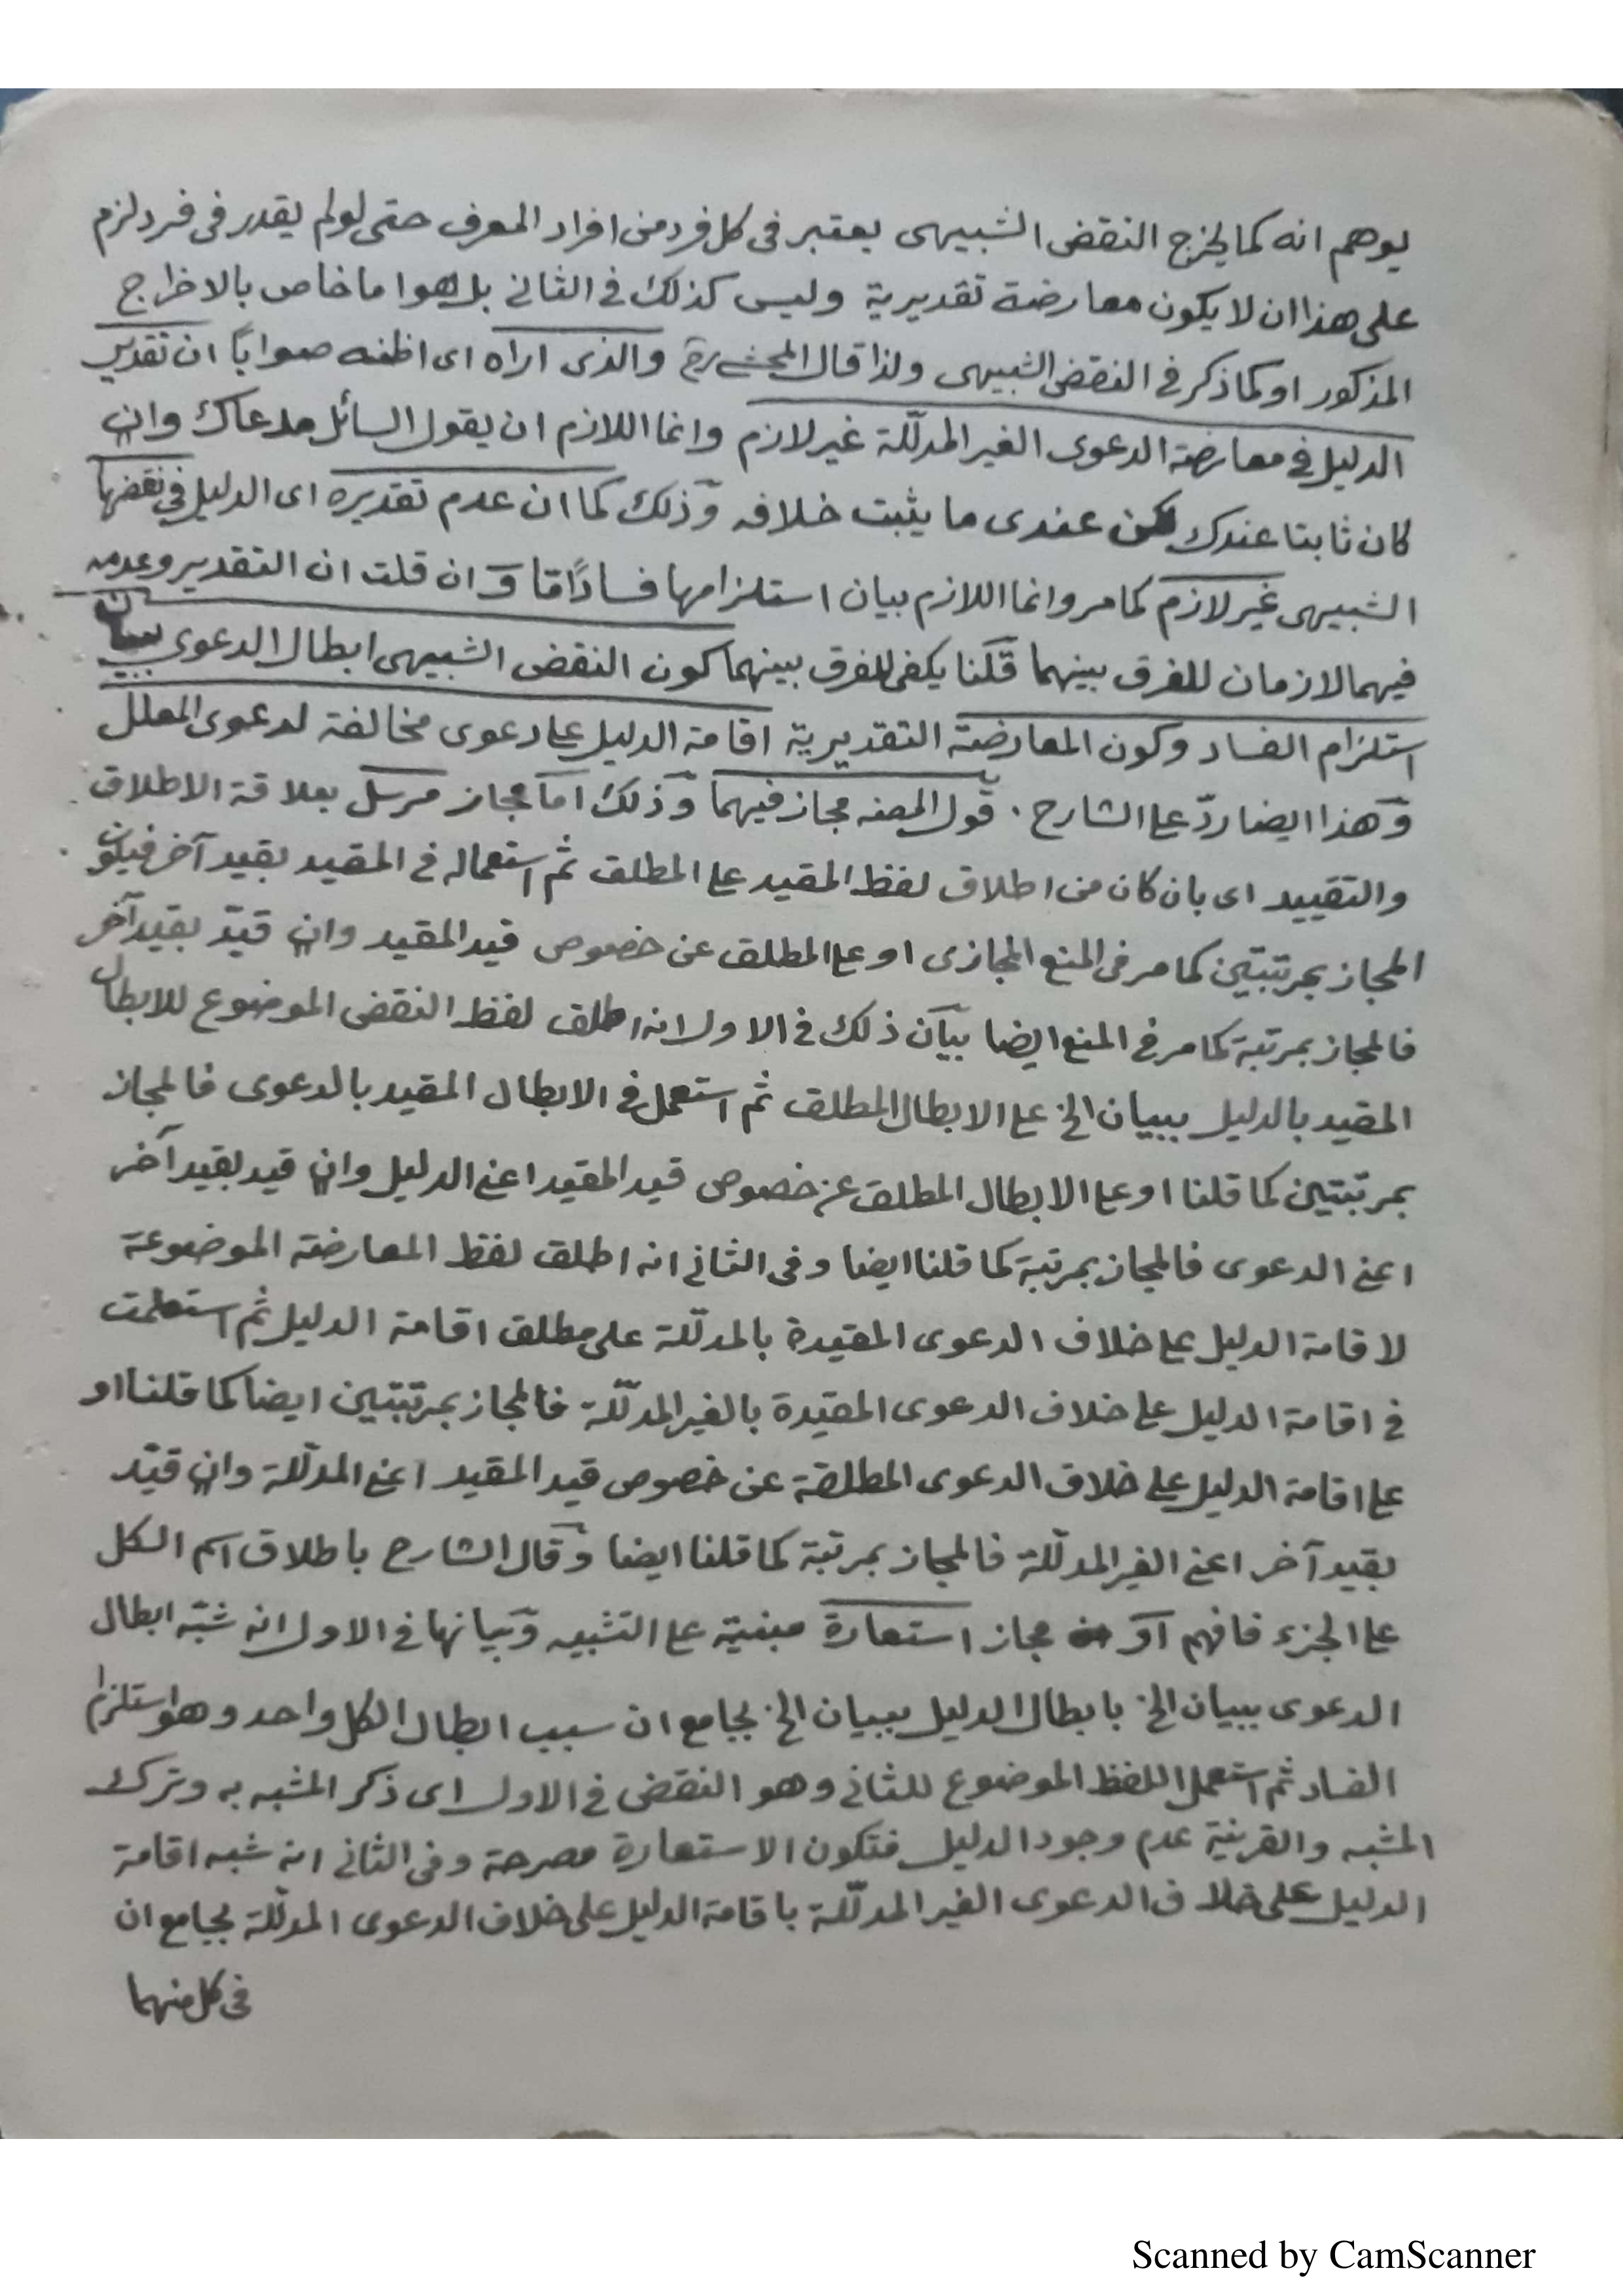 يوهم انه كما يخرج النقض الشبيهى يعتبر فى كل فرد من افراد المعرف حتى لو لم يقدر فى فرد لزم
على هذا ان لا يكون معارضة تقديرية وليس كذلك فى الثانى بل هو اما خاص بالاخراج
المذكور او كما ذكر فى النقض الشبيهى ولذا قال المحشى رح والذى اراه اى اظنه صوابًا ان تقدير
الدليل فى معارضة الدعوى الغير المدلّلة غير لازم وانما اللازم ان يقول السائل مدعاك وان
كان ثابتا عندك لكن عندى ما يثبت خلافه وذلك كما ان عدم تقديره اى الدليل فى نقضها
الشبيهى غير لازم كما مر وانما اللازم بيان استلزامها فسادًا ما وان قلت ان التقدير وعدمه
فيهما لازمان للفرق بينهما قلنا يكفى للفرق بينهما كون النقض الشبيهى ابطال الدعوى ببيان
استلزام الفساد وكون المعارضة التقديرية اقامة الدليل على دعوى مخالفة لدعوى المعلل
وهذا ايضا ردّ على الشارح . قول المصنه مجاز فيهما وذلك اما مجاز مرسل بعلاقة الاطلاق
والتقييد اى بان كان من اطلاق لفظ المقيد على المطلق ثم استعماله فى المقيد بقيد آخر فيكون
المجاز بمرتبتين كما مر فى المنع المجازى او على المطلق عن خصوص قيد المقيد وان قيّد بقيد آخر
فالمجاز بمرتبة كما مر فى المنع ايضا بيان ذلك فى الاول انه اطلق لفظ النقض الموضوع للابطال
المقيد بالدليل ببيان الخ على الابطال المطلق ثم استعمل فى الابطال المقيد بالدعوى فالمجاز
بمرتبتين كما قلنا او على الابطال المطلق عن خصوص قيد المقيد اعنى الدليل وان قيد بقيد آخر
اعنى الدعوى فالمجاز بمرتبة كما قلنا ايضا وفى الثانى انه اطلق لفظ المعارضة الموضوعة
لاقامة الدليل على خلاف الدعوى المقيدة بالمدلّلة على مطلق اقامة الدليل ثم استعملت
فى اقامة الدليل على خلاف الدعوى المقيّدة بالغير المدلّلة فالمجاز بمرتبتين ايضا كما قلنا او
على اقامة الدليل على خلاف الدعوى المطلقة عن خصوص قيد المقيد اعنى المدلّلة وان قيّد
بقيد آخر اعنى الغير المدلّلة فالمجاز بمرتبة كما قلنا ايضا وقال الشارح باطلاق اسم الكل
على الجزء فافهم او مجاز استعارة مبنية على التشبيه وبيانها فى الاول انه شبّه ابطال
الدعوى ببيان الخ بابطال الدليل ببيان الخ بجامع ان سبب ابطال الكل واحد وهو استلزام
الفساد ثم استعمل اللفظ الموضوع للثانى وهو النقض فى الاول اى ذكر المشبه به وترك
المشبه والقرينة عدم وجود الدليل فتكون الاستعارة مصرحة وفى الثانى انه شبه اقامة
الدليل على خلاف الدعوى الغير المدلّلة باقامة الدليل على خلاف الدعوى المدلّلة بجامع ان
فى كل منهما
Scanned by CamScanner